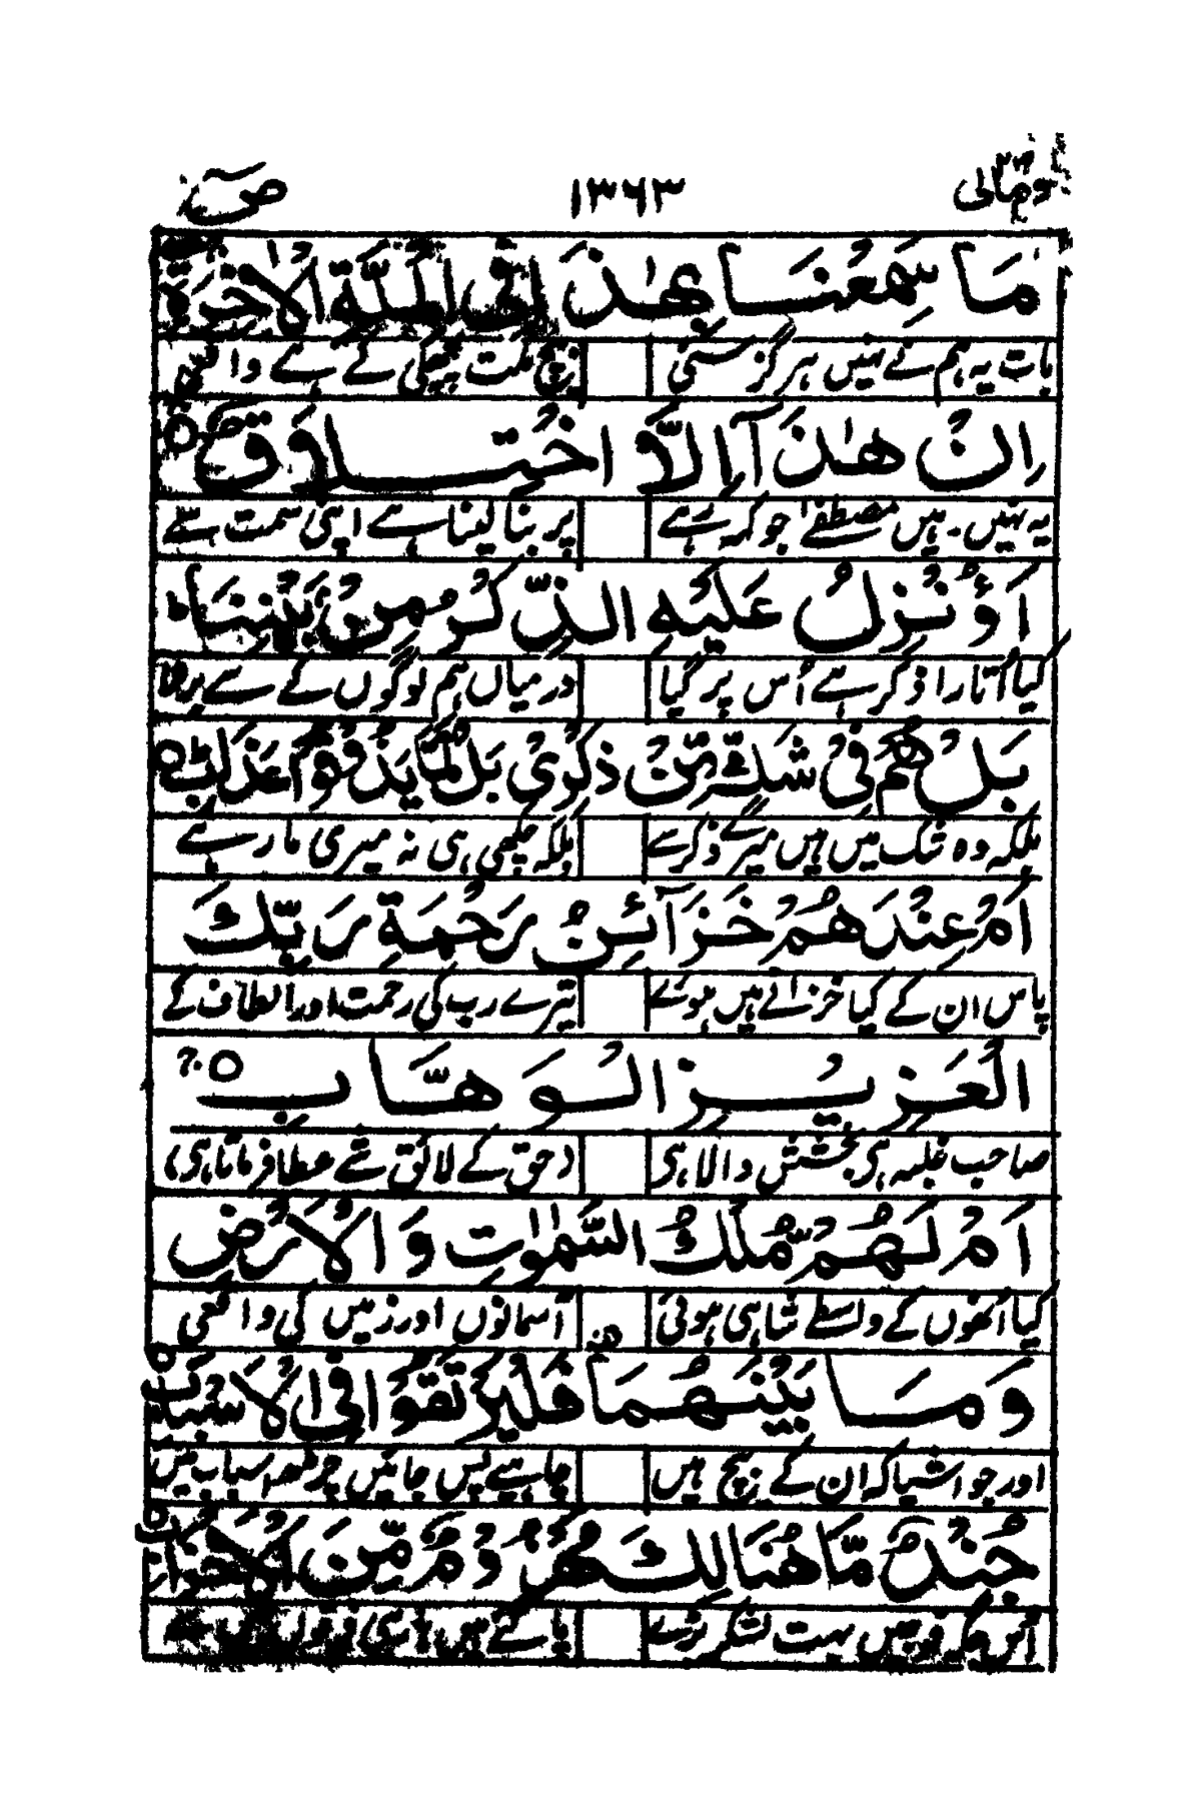 ومالی ۲۳ ۱۳۶۳ صٓ
مَا سَمِعْنَا بِهٰذَا فِی الْمِلَّةِ الْاٰخِرَةِ
بات یہ ہم نے نہیں ہرگز سنی بیچ ملت پچھلی کے ہے واقعی
اِنْ هٰذَآ اِلَّا اخْتِلَاقٌ
یہ نہیں۔ ہیں مصطفےٰ جو کہہ رہے پر بنا لینا ہے اپنی سمت سے
اَؤُنْزِلَ عَلَیْهِ الذِّكْرُ مِنْ بَیْنِنَا
کیا اُتارا ذکر ہے اُس پر گیا درمیاں ہم لوگوں کے سے برملا
بَلْ هُمْ فِیْ شَكٍّ مِّنْ ذِكْرِیْ بَلْ لَّمَّا یَذُوْقُوْا عَذَابِ
بلکہ وہ شک میں ہیں میرے ذکر سے بلکہ چکھی ہی نہ میری مار ہے
اَمْ عِنْدَهُمْ خَزَآئِنُ رَحْمَةِ رَبِّكَ
پاس ان کے کیا خزانے ہیں ہوئے تیرے رب کی رحمت اور الطاف کے
الْعَزِیْزِ الْوَهَّابِ
صاحب غلبہ ہی بخشش والا ہی (حق کے لائق شے عطا فرماتا ہی)
اَمْ لَهُمْ مُّلْكُ السَّمٰوٰتِ وَالْاَرْضِ
کیا اُنھوں کے واسطے شاہی ہوئی آسمانوں اور زمیں کی واقعی
وَمَا بَیْنَهُمَا فَلْیَرْتَقُوْا فِی الْاَسْبَابِ
اور جو اشیا کہ ان کے بیچ ہیں چاہیے پس جائیں چڑھ اسباب میں
جُنْدٌ مَّا هُنَالِكَ مَهْزُوْمٌ مِّنَ الْاَحْزَابِ
اُس جگہ فوجیں بہت لشکر بڑے